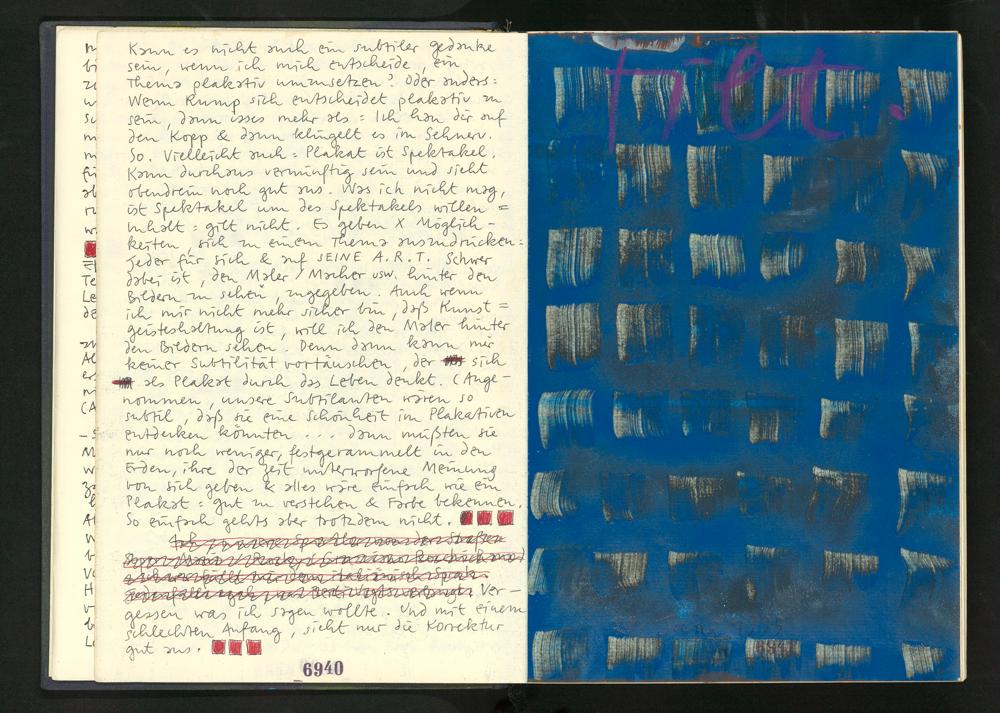 Kann es nicht auch ein subtiler gedanke
sein, wenn ich mich entscheide, ein
Thema plakativ umzusetzen? Oder anders:
Wenn Rump sich entscheidet plakativ zu
sein, dann isses mehr als: Ich hau dir auf
den Kopp & dann klingelt es im Sehnerv.
So. Vielleicht auch: Plakat ist Spektakel.
Kann durchaus vernünftig sein und sieht
obendrein noch gut aus. Was ich nicht mag,
ist Spektakel um des Spektakels willen =
inhalt: gilt nicht. Es geben X Möglich-
keiten, sich zu einem Thema auszudrücken:
jeder für sich & auf SEINE A.R.T. Schwer
dabei ist, den Maler/Macher usw. hinter den
Bildern zu sehen, zugegeben. Auch wenn
ich mir nicht mehr sicher bin, daß Kunst =
geisteshaltung ist, will ich den Maler hinter
den Bildern sehen. Denn dann kann mir
keiner Subtilität vortäuschen, der sich
als Plakat durch das Leben denkt. (Ange-
nommen, unsere Subtilanten wären so
subtil, daß sie eine Schönheit im Plakativen
entdecken könnten ... dann müßten sie
nur noch weniger, festgerammelt in den
Erden, ihre der Zeit unterworfene Meinung
von sich geben & alles wäre einfach wie ein
Plakat: gut zu verstehen & Farbe bekennen.
So einfach gehts aber trotzdem nicht.
Ver-
gessen was ich sagen wollte. Und mit einem
schlechten Anfang, sieht nur die Korrektur
gut aus.
6940
tilt.